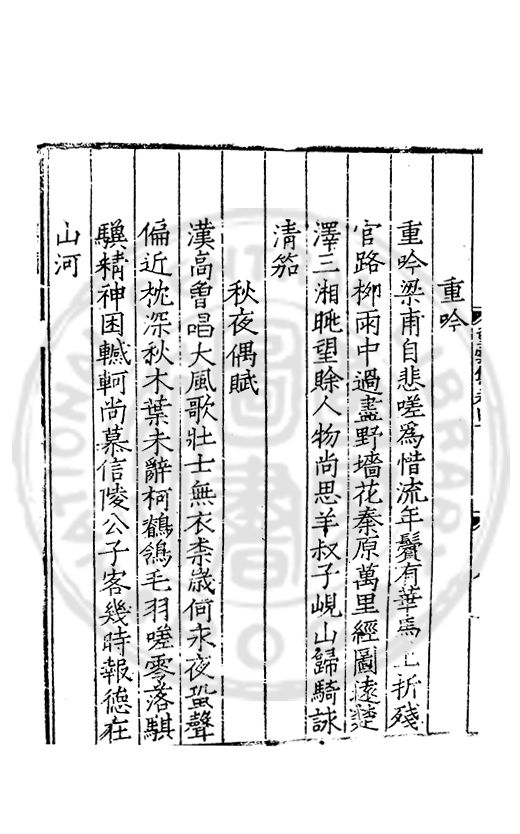 重吟
重吟梁甫自悲嗟為惜流年鬢有華馬上折殘
官路柳雨中過盡野墻花秦原萬里經圖遠楚
澤三湘眺望賒人物尚思羊叔子峴山歸騎詠
清笳
秋夜偶賦
漢高曾唱大風歌壯士無衣柰歲何永夜蛩聲
偏近枕深秋木葉未辭柯鶺鴒毛羽嗟零落騏
驥精神困轗軻尚慕信陵公子客幾時報德在
山河